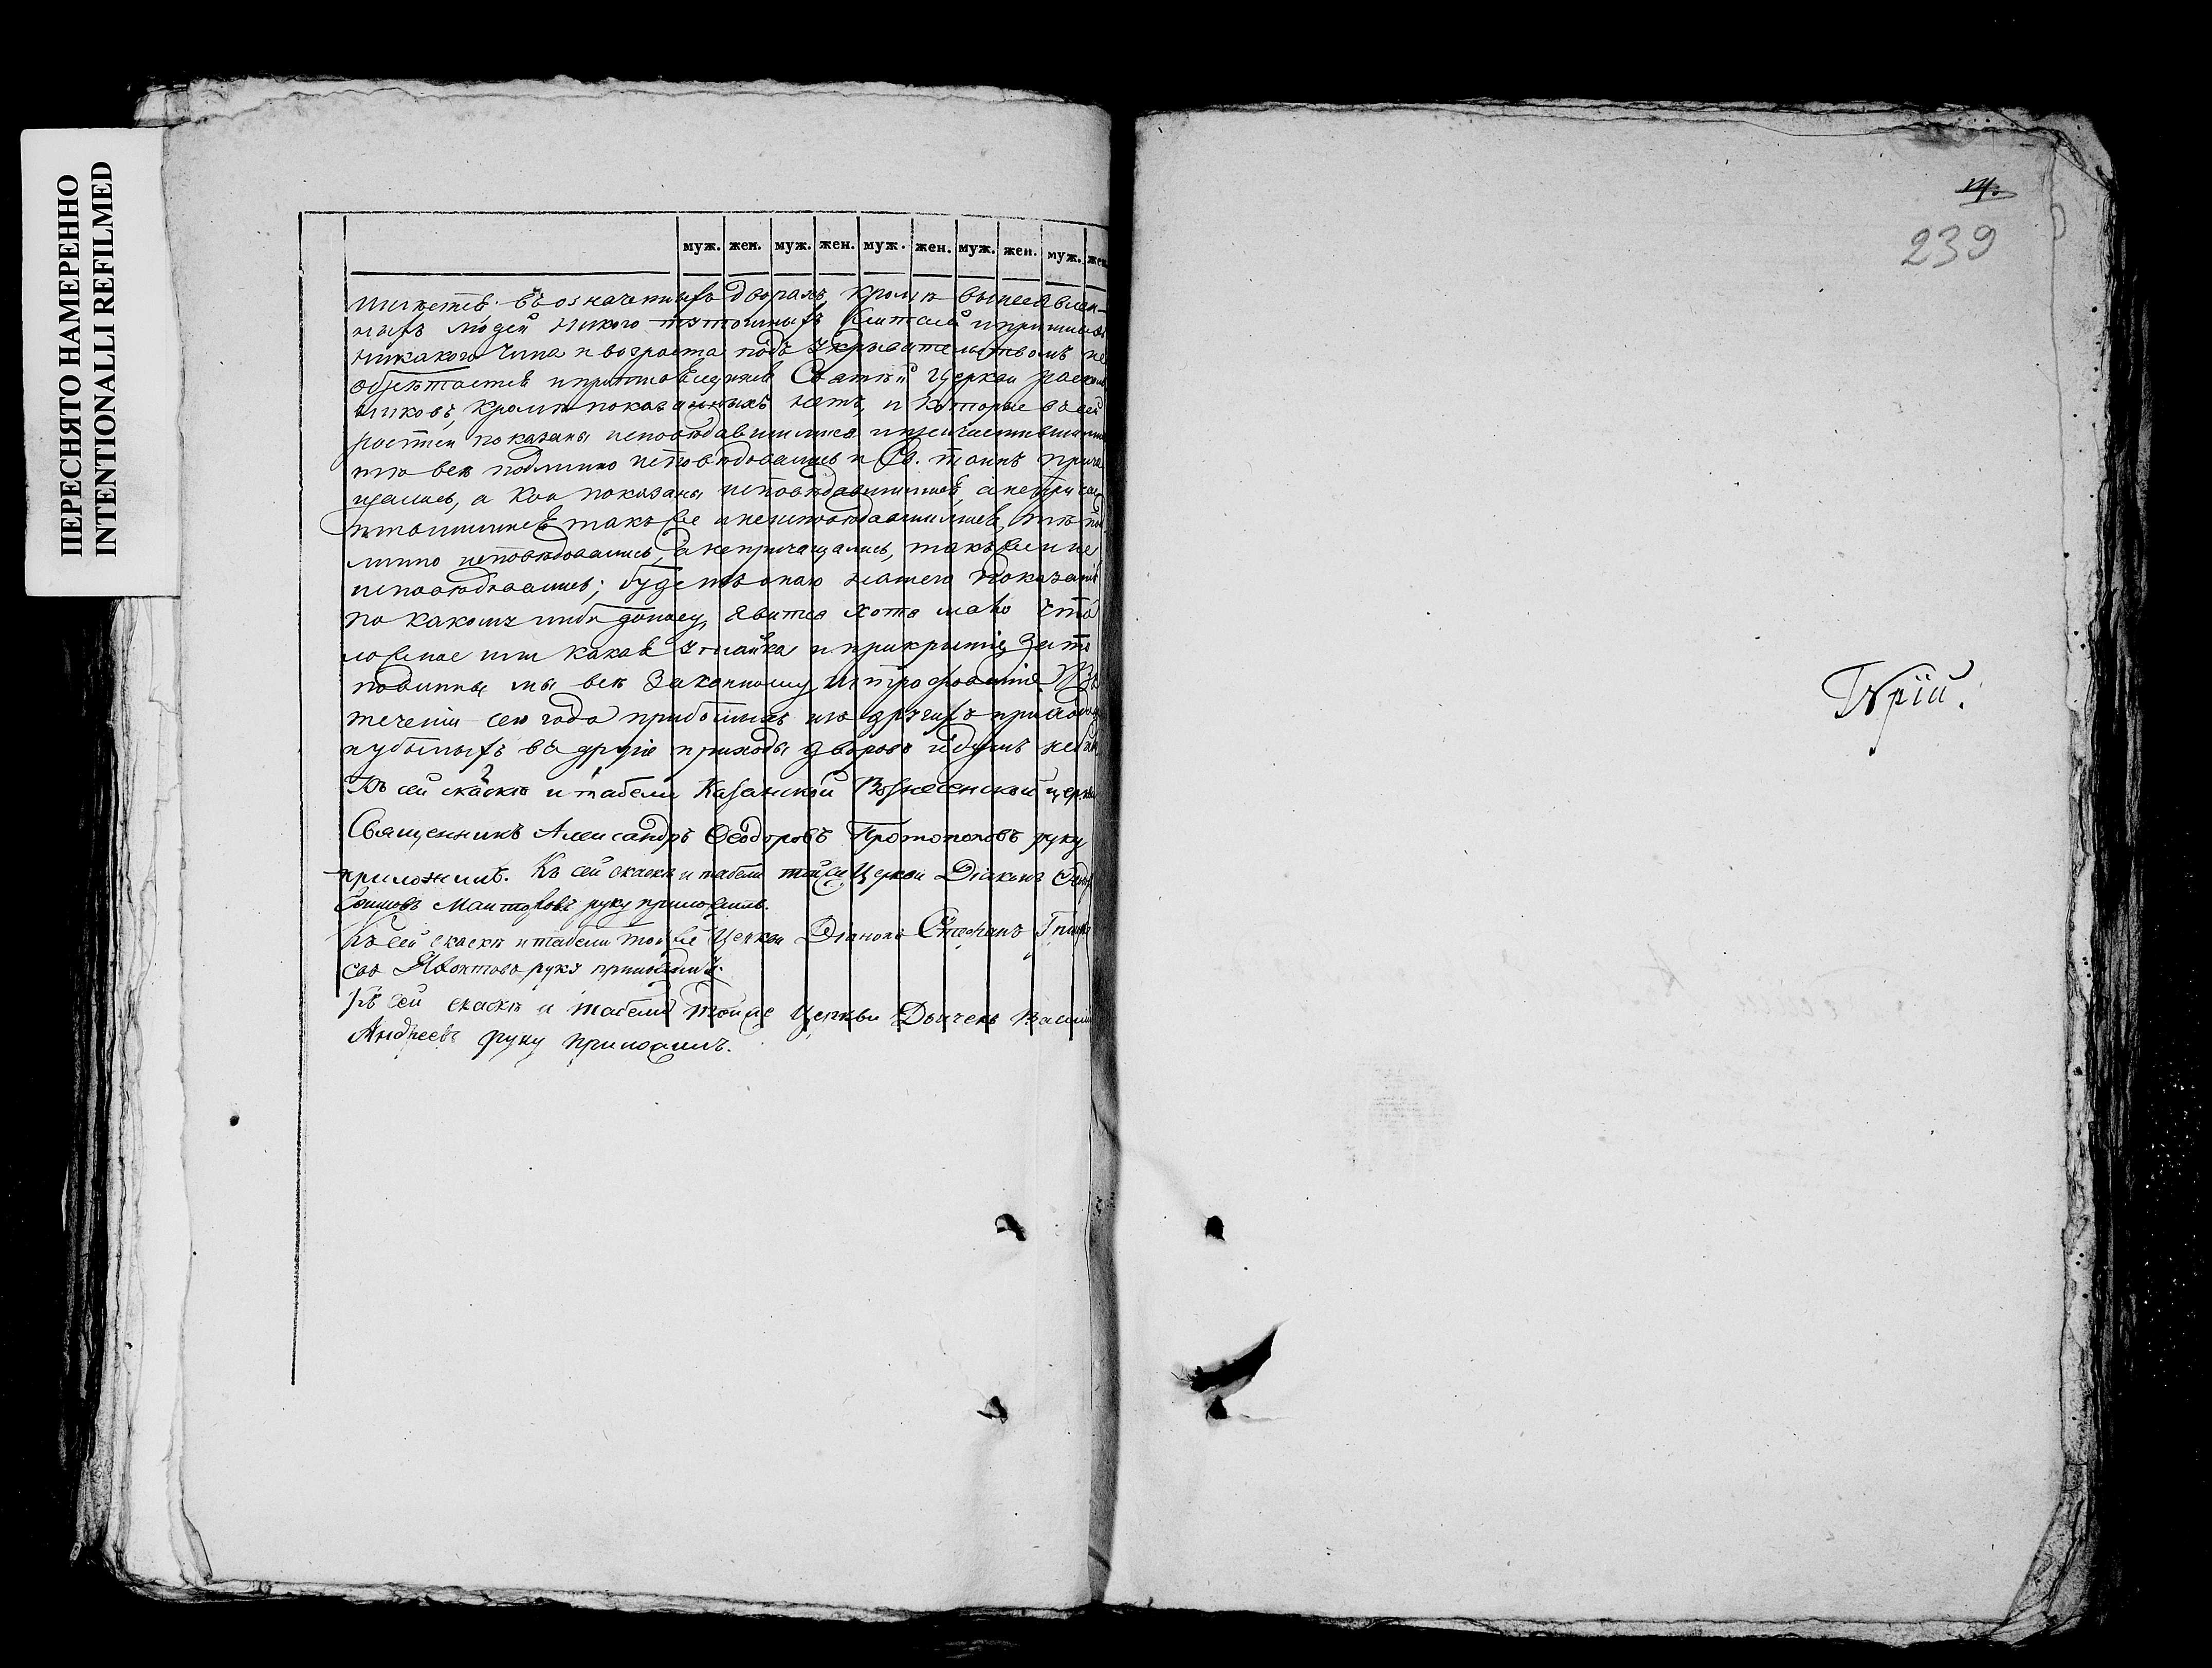 ПЕРЕСНЯТО НАМЕРЕННО
INTENTIONALLI REFILMED
муж. жен. муж. жен. муж. жен. муж. жен. муж. жен.
въ означенныхъ дворахъ, кромѣ
ныхъ людей никого
никакого чина и возраста подъ укрывательствомъ не
Святѣй Церкви раскол
никовъ, кромѣ показанныхъ нетъ, и которые в сей
росписи показаны исповѣдавшимися и
тѣ всѣ подлинно исповѣдовались и Св. таинъ прича
щались, а кои показаны исповѣдавшимися, а непри
такъ же и неисповѣдавшимися, тѣ под
линно исповѣдовались, а непричащались, такъ же и не
исповѣдовались; буде въ нашего показанія
по какому либо доносу явится хотя мало что
ложное или какая утайка и прикрытіе, за то
повинны мы всѣ законному штрафованію. Въ
теченіи сего года прибылыхъ изъ другихъ приходовъ
и убылыхъ въ другіе приходы дворовъ и душъ
Къ сей скаскѣ и табели Казанской Вознесенской церкви
Священникъ Александръ Ѳеодоровъ Протопоповъ руку
приложилъ. Къ сей скаскѣ и табели тойже Церкви Діаконъ
руку приложилъ.
Къ сей скаскѣ и табели той же Церкви Стефанъ
руку приложилъ.
Къ сей скаскѣ и табели тойже Церкви Дьячекъ Васил
Андреевъ руку приложилъ.
239